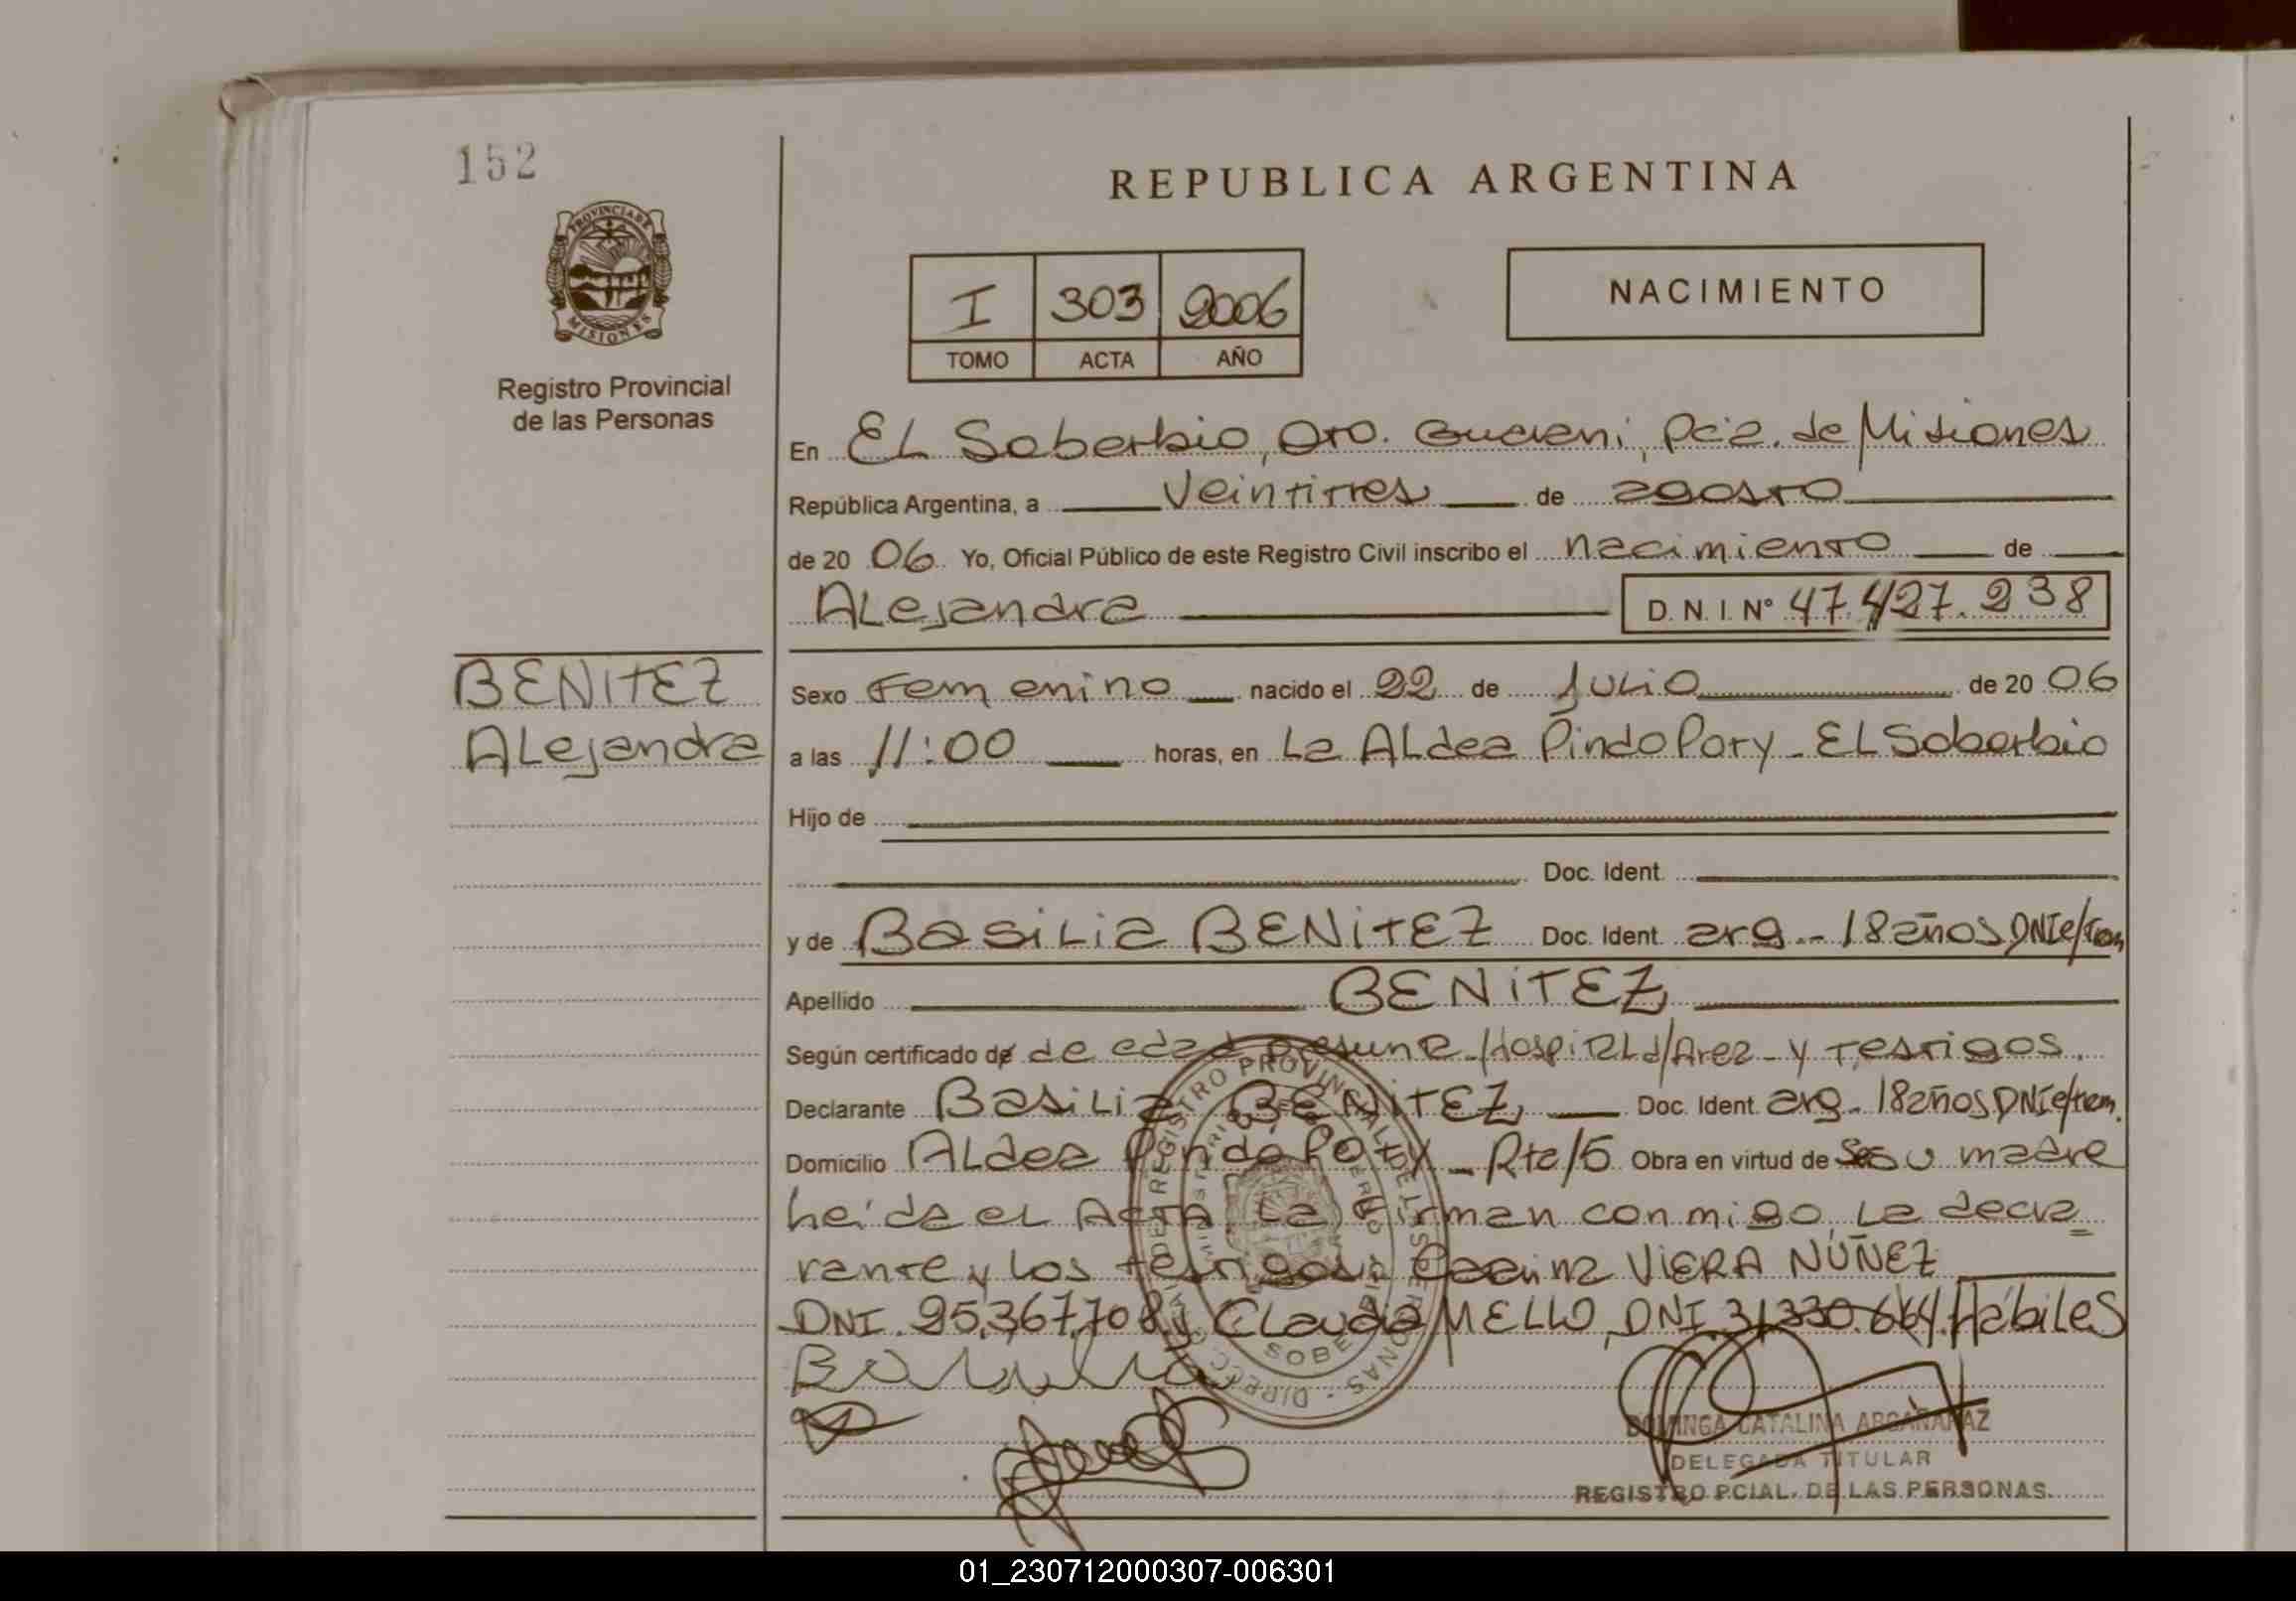 152
REPUBLICA ARGENTINA
PROVINCIA DE
MISIONES
Registro Provincial
de las Personas
I 303 2006
TOMO ACTA AÑO
NACIMIENTO
En EL Soberbio, Dto. Guarani, Pcia. de Misiones
República Argentina, a Veintitres de agosto
de 20 06 Yo, Oficial Público de este Registro Civil inscribo el nacimiento de
ALejandra D.N.I. N° 47.427.238
BENITEZ
ALejandra
Sexo Femenino nacido el 22 de JULIO de 20 06
a las 11:00 horas, en La ALdea Pindo Poty - EL Soberbio
Hijo de
Doc. Ident.
y de BasiLia BENITEZ Doc. Ident. arg. - 18 años DNI e/tram
Apellido BENITEZ
Según certificado de de edad presunta - Hospital d/Area - y testigos.
Declarante BasiLia BENITEZ Doc. Ident. arg. 18 años DNI e/tram.
Domicilio ALdea Pindo Poty - Rta/5 Obra en virtud de Ser su madre
Leida el Acta, La firman conmigo, La decla
rante y Los testigos: VIERA NÚÑEZ
DNI. 95.367.708 y CLaudia MELLO, DNI. 31.330.664. Hábiles
DOMINGA CATALINA ARGAÑARAZ
DELEGADA TITULAR
REGISTRO PCIAL. DE LAS PERSONAS
01_230712000307-006301